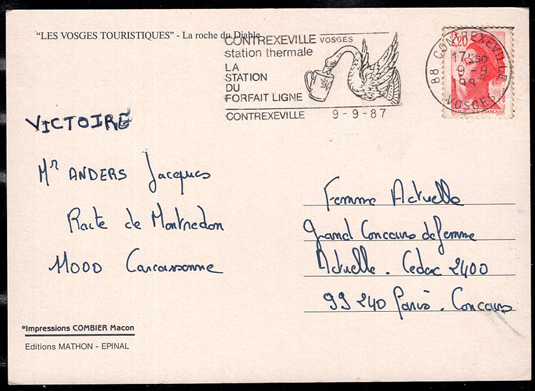 "LES VOSGES TOURISTIQUES" - La roche du Diable
CONTREXEVILLE VOSGES
station thermale
LA
STATION
DU
FORFAIT LIGNE
CONTREXEVILLE 9-9-87
88 CONTREXEVILLE
17
9-9
VOSGES
2,20
VICTOIRE
Mr ANDERS Jacques
Route de Montredon
11000 Carcassonne
Femme Actuelle
Grand Concours de femme
Actuelle. Cedex 2400
99 240 Paris. Concours
Impressions COMBIER Macon
Editions MATHON - EPINAL